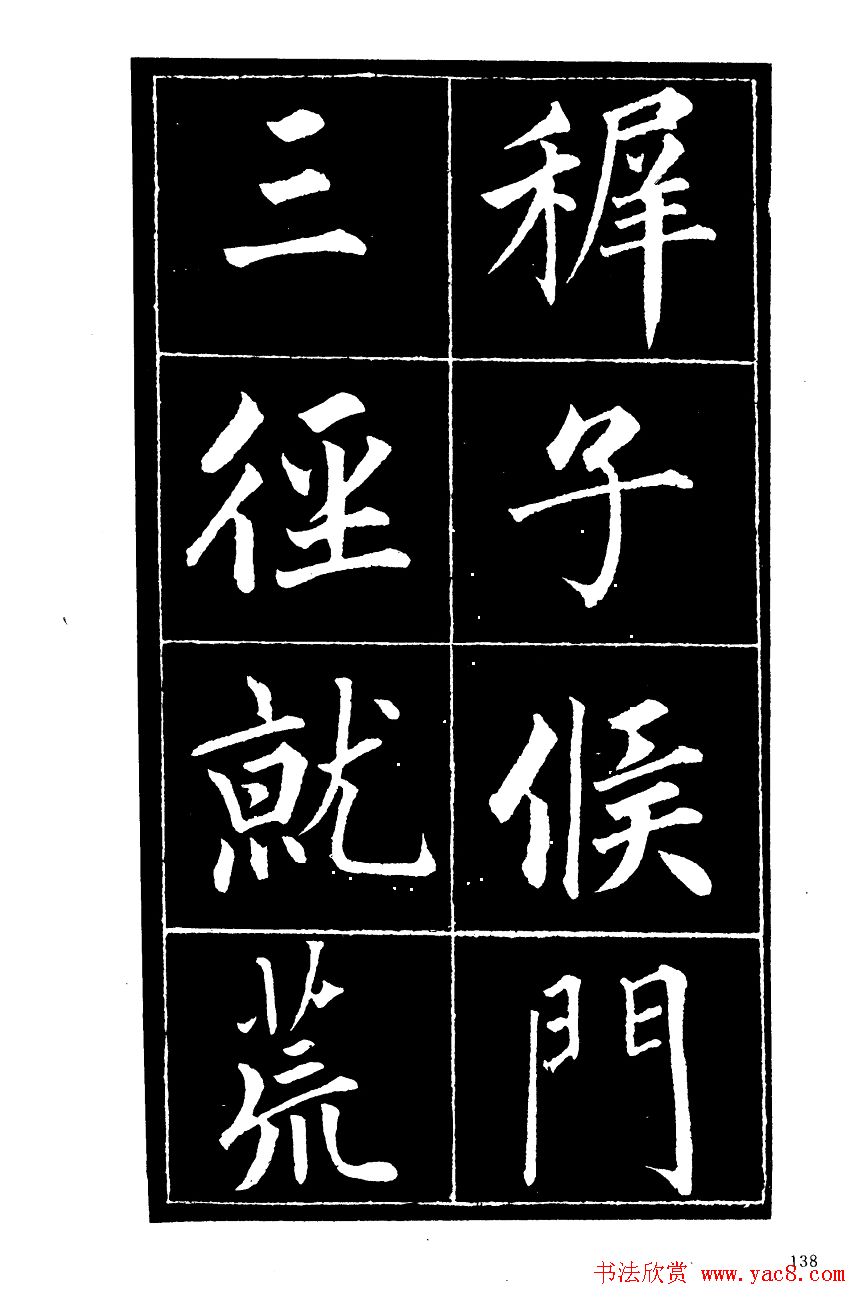 稺子候門
三徑就荒
138
书法欣赏 www.yac8.com